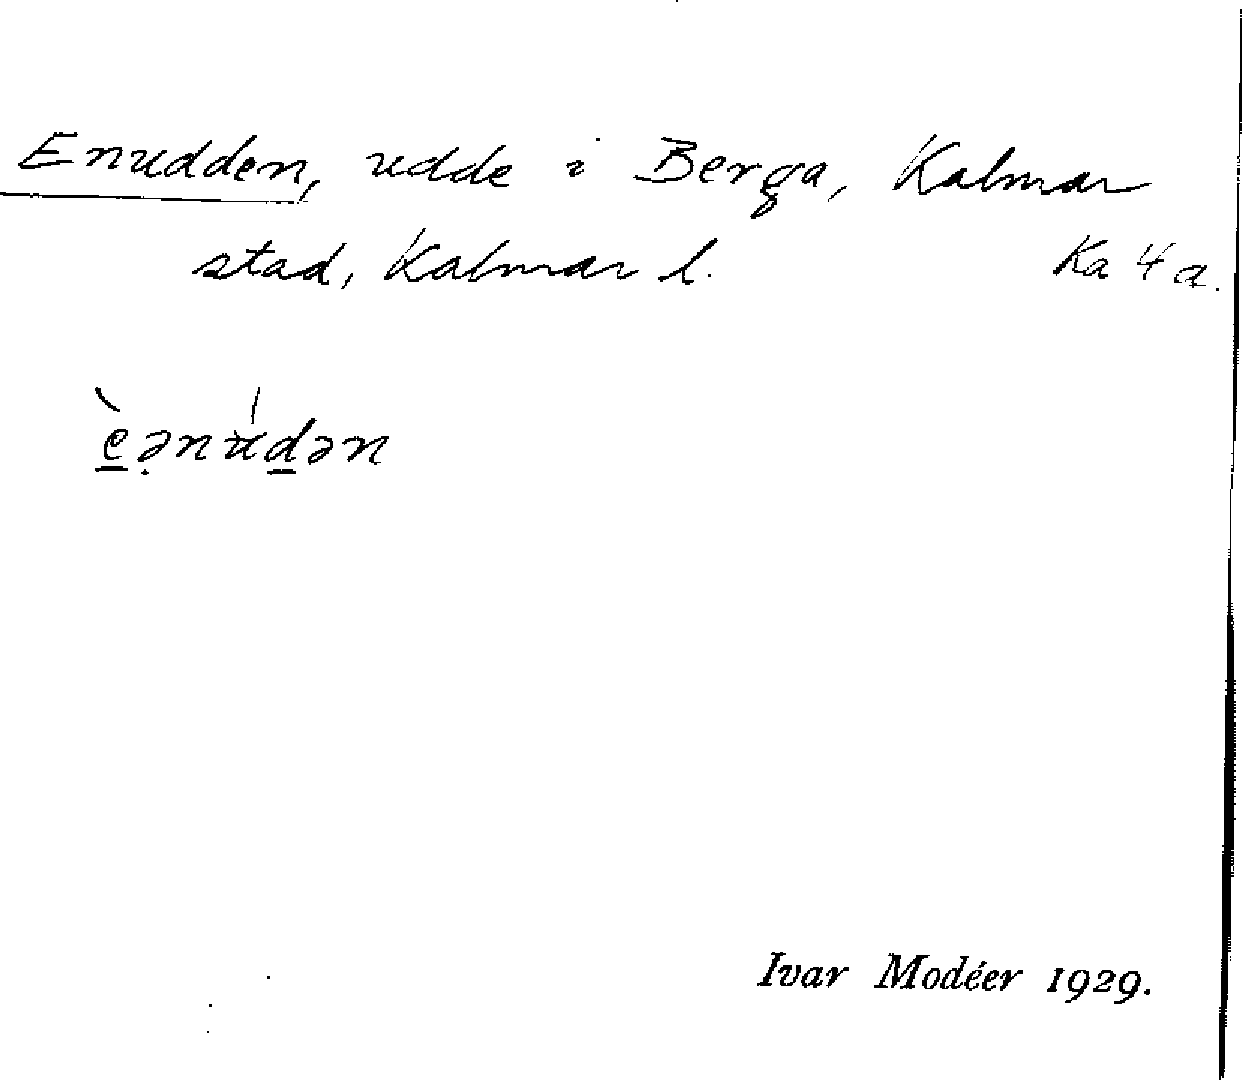 Enudden, udde i Berga, Kalmar
stad, Kalmar l. Ka 4 a.
è̲ə̣núd̲ən
Ivar Modéer 1929.